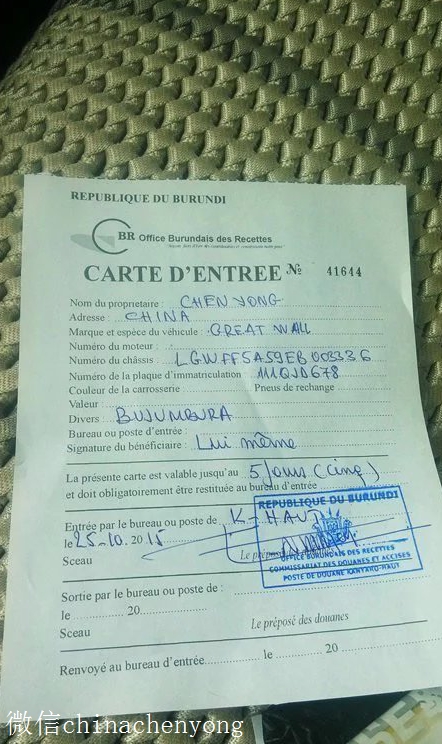 REPUBLIQUE DU BURUNDI
BR Office Burundais des Recettes
CARTE D'ENTREE № 41644
Nom du proprietaire : CHEN YONG
Adresse : CHINA
Marque et espèce du véhicule : GREAT WALL
Numéro du moteur :
Numéro du châssis : LGWFF5A59EB003336
Numéro de la plaque d'immatriculation
Couleur de la carrosserie Pneus de rechange
Valeur
Divers : BUJUMBURA
Bureau ou poste d'entrée :
Signature du bénéficiaire : Lui même
La présente carte est valable jusqu'au 5 Jours (cinq)
et doit obligatoirement être restituée au bureau d'entrée
Entrée par le bureau ou poste de K-HAUT
le 25-10. 2015
Sceau Le préposé
REPUBLIQUE DU BURUNDI
OFFICE BURUNDAIS DES RECETTES
COMMISSARIAT DES DOUANES ET ACCISES
POSTE DE DOUANE KANYARU-HAUT
Sortie par le bureau ou poste de :
le ............... 20
Sceau Le préposé des douanes
Renvoyé au bureau d'entrée le 20
微信chinachenyong